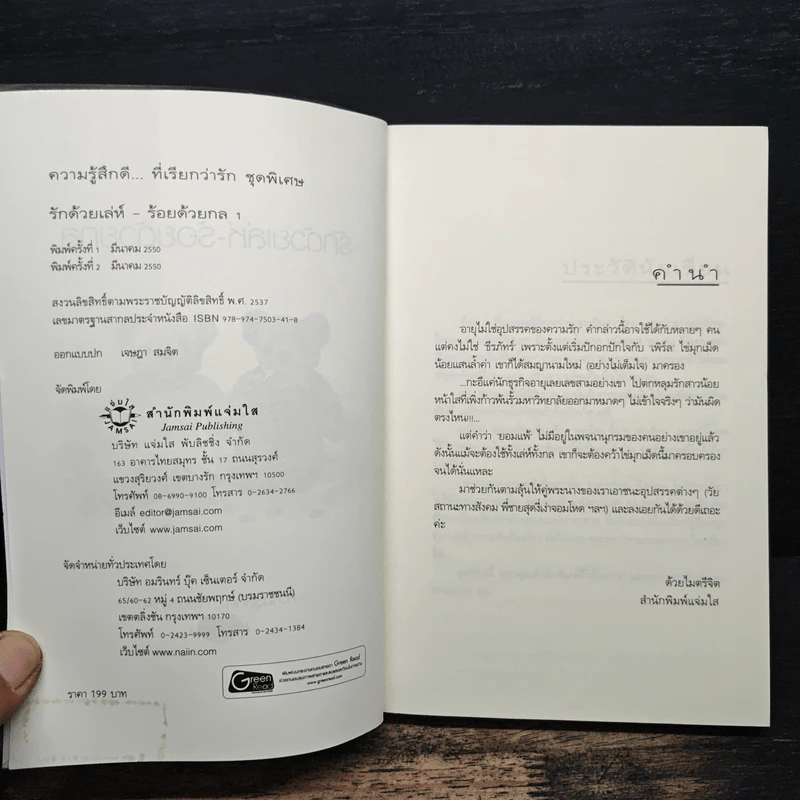 ความรู้สึกดี... ที่เรียกว่ารัก ชุดพิเศษ
รักด้วยเล่ห์ - ร้อยด้วยกล 1
พิมพ์ครั้งที่ 1 มีนาคม 2550
พิมพ์ครั้งที่ 2 มีนาคม 2550
สงวนลิขสิทธิ์ตามพระราชบัญญัติลิขสิทธิ์ พ.ศ. 2537
เลขมาตรฐานสากลประจำหนังสือ ISBN 978-974-7503-41-8
ออกแบบปก เจษฎา สมจิต
จัดพิมพ์โดย
แจ่มใส
JAMSAI
สำนักพิมพ์แจ่มใส
Jamsai Publishing
บริษัท แจ่มใส พับลิชชิ่ง จำกัด
163 อาคารไทยสมุทร ชั้น 17 ถนนสุรวงศ์
แขวงสุริยวงศ์ เขตบางรัก กรุงเทพฯ 10500
โทรศัพท์ 08-6990-9100 โทรสาร 0-2634-2766
อีเมล์ editor@jamsai.com
เว็บไซต์ www.jamsai.com
จัดจำหน่ายทั่วประเทศโดย
บริษัท อมรินทร์ บุ๊ค เซ็นเตอร์ จำกัด
65/60-62 หมู่ 4 ถนนชัยพฤกษ์ (บรมราชชนนี)
เขตตลิ่งชัน กรุงเทพฯ 10170
โทรศัพท์ 0-2423-9999 โทรสาร 0-2434-1384
เว็บไซต์ www.naiin.com
Green Read
www.greenread.com
ราคา 199 บาท
คำนำ
'อายุไม่ใช่อุปสรรคของความรัก' คำกล่าวนี้อาจใช้ได้กับหลายๆ คน
แต่คงไม่ใช่ 'ธีรภัทร์' เพราะตั้งแต่เริ่มปักอกปักใจกับ 'เพิร์ล' ไข่มุกเม็ด
น้อยแสนล้ำค่า เขาก็ได้สมญานามใหม่ (อย่างไม่เต็มใจ) มาครอง
...กะอีแค่นักธุรกิจอายุเลยเลขสามอย่างเขา ไปตกหลุมรักสาวน้อย
หน้าใสที่เพิ่งก้าวพ้นรั้วมหาวิทยาลัยออกมาหมาดๆ ไม่เข้าใจจริงๆ ว่ามันผิด
ตรงไหน!!!...
แต่คำว่า 'ยอมแพ้' ไม่มีอยู่ในพจนานุกรมของคนอย่างเขาอยู่แล้ว
ดังนั้นแม้จะต้องใช้ทั้งเล่ห์ทั้งกล เขาก็จะต้องคว้าไข่มุกเม็ดนี้มาครอบครอง
จนได้นั่นแหละ
มาช่วยกันตามลุ้นให้คู่พระนางของเราเอาชนะอุปสรรคต่างๆ (วัย
สถานะทางสังคม พี่ชายสุดงี่เง่าจอมโหด ฯลฯ) และลงเอยกันได้ด้วยดีเถอะ
ค่ะ
ด้วยไมตรีจิต
สำนักพิมพ์แจ่มใส